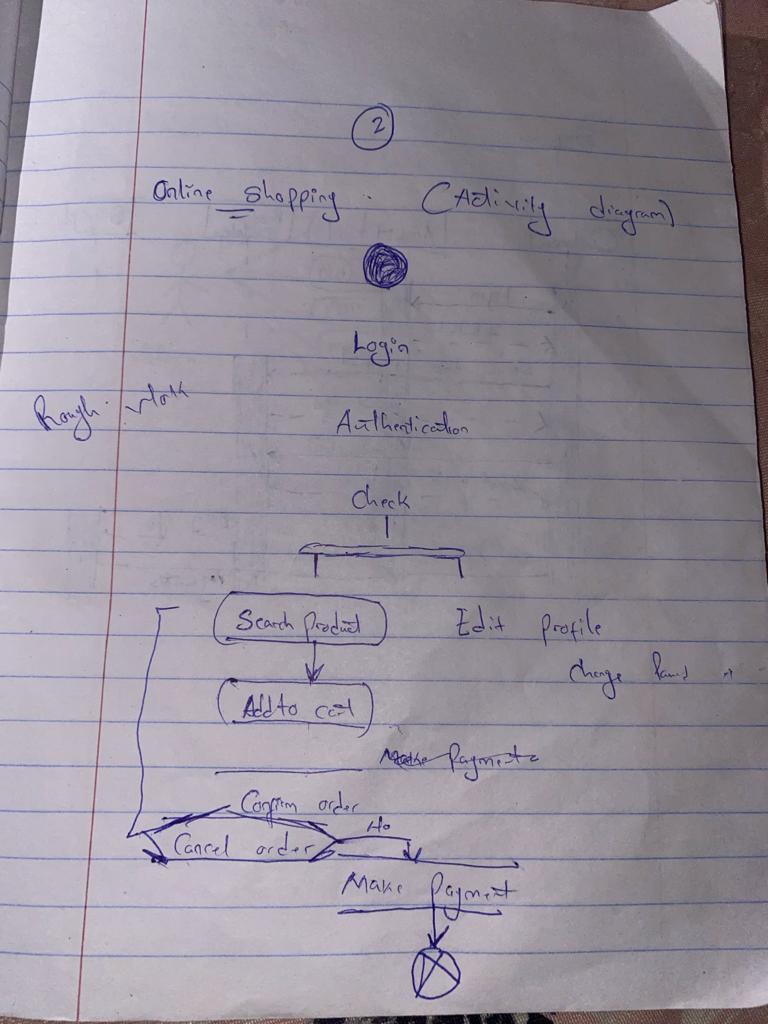 2
Online shopping (Activity diagram)
Login
Rough work
Authentication
Check
Search product Edit profile
change
Add to cart
Make Payment
Confirm order
No
Cancel order
Make Payment